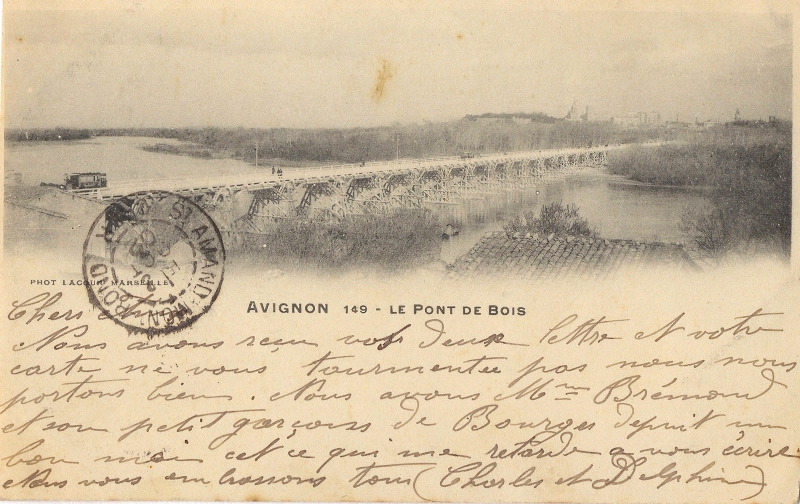 ST AMAND-MONTROND
PHOT LACOUR MARSEILLE
AVIGNON 149 - LE PONT DE BOIS
Chers
Nous avons reçu vos deux lettre et votre
carte ne vous tourmentée pas nous nous
portons bien. Nous avons Mme Brémond
et son petit garçons de Bourges depuit un
bon moi cet ce qui me retarde a vous écrire
Nous vous embrassons tous (Charles et Delphine)